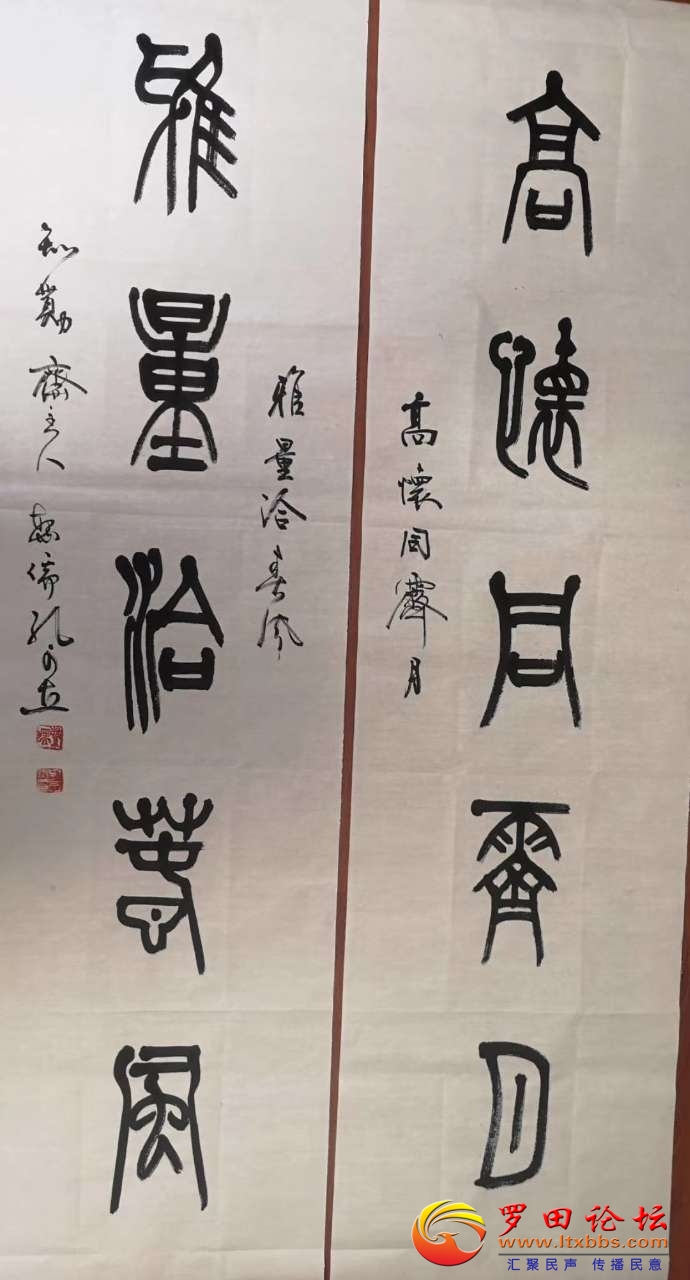 高懷同霽月
高懷同霽月
雅量洽春風
雅量洽春风
知勤齋主人
罗田论坛
www.ltxbbs.com
汇聚民声 传播民意